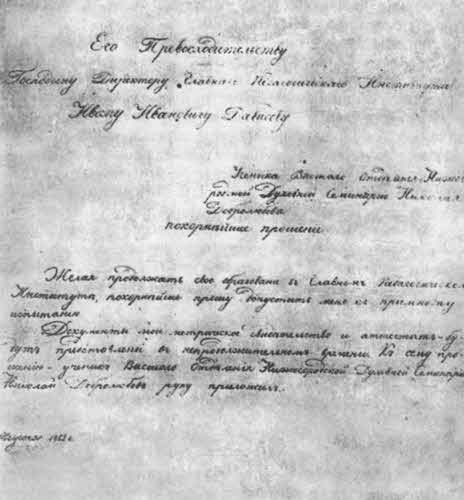 Его Превосходительству
Господину Директору Главнаго Педагогическаго Института
Ивану Ивановичу Давыдову
Ученика Высшаго Отделения Нижего-
родской Духовной Семинарии Николая
Добролюбова
покорнейшее прошение.
Желая продолжать свое образование в Главном Педагогическом
Институте, покорнейше прошу допустить меня к приемному
испытанию.
Документы мои: метрическое свидетельство и аттестат бу-
дут представлены в непродолжительном времени. К сему про-
шению ученик Высшаго Отделения Нижегородской Духовной Семинарии
Николай Добролюбов руку приложил.